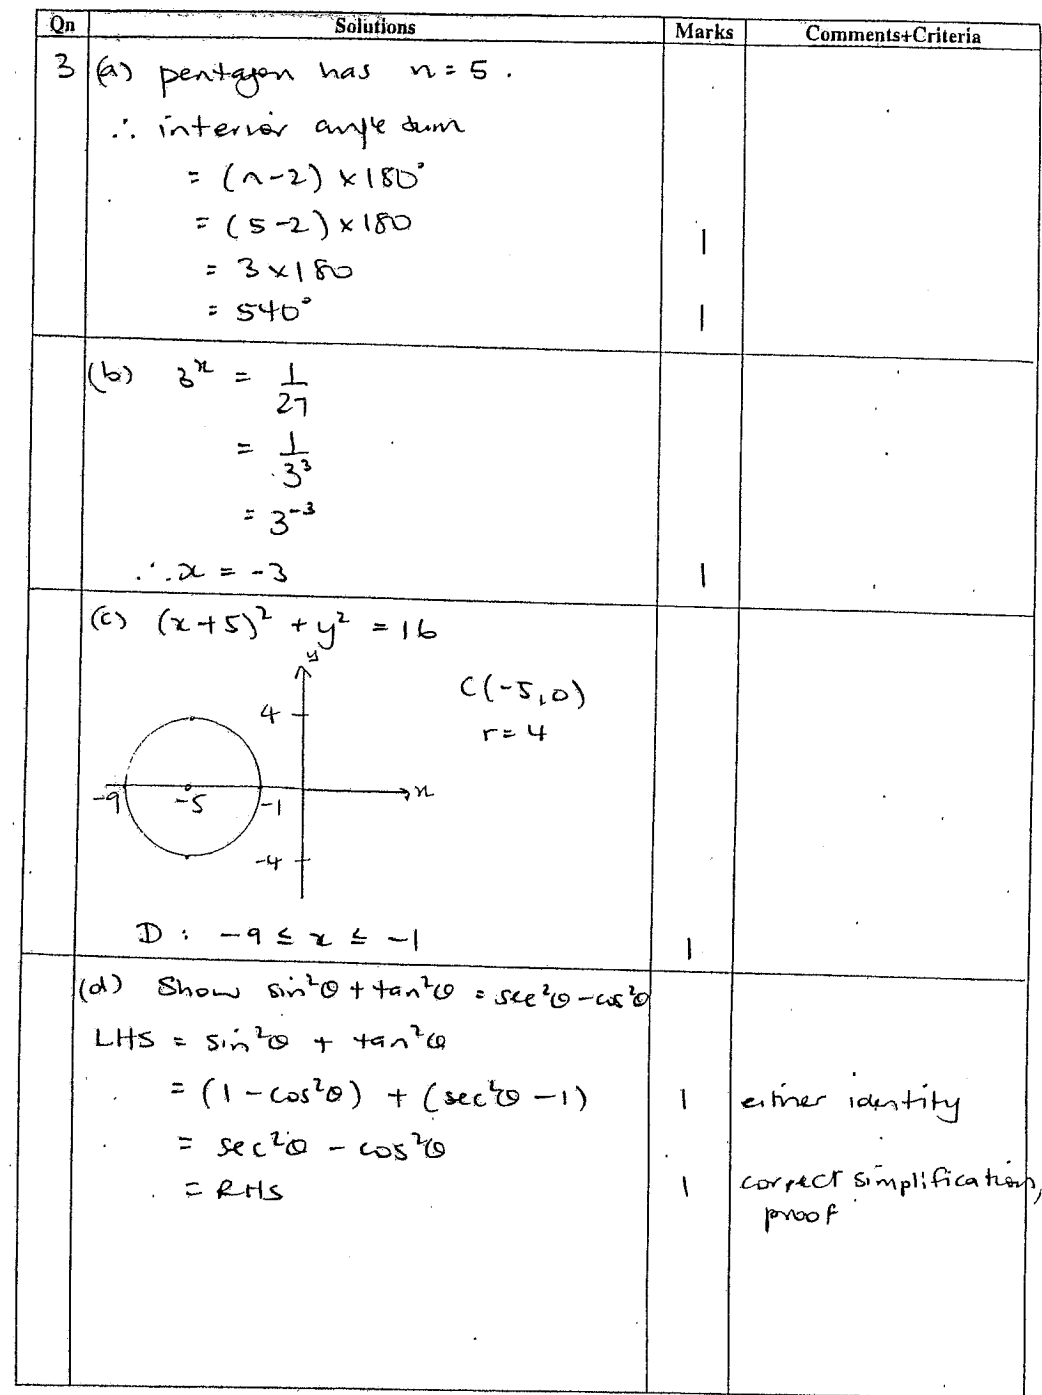 Qn Solutions Marks Comments+Criteria
3 (a) pentagon has n = 5 .
∴ interior angle sum
= (n-2) × 180°
= (5-2) × 180 1
= 3 × 180
= 540° 1
(b) 3^x = 1/27
= 1/3^3
= 3^-3
∴ x = -3 1
(c) (x+5)² + y² = 16
y
C(-5,0)
4
r = 4
-9 -5 -1 x
-4
D : -9 ≤ x ≤ -1 1
(d) Show sin²θ + tan²θ = sec²θ - cos²θ
LHS = sin²θ + tan²θ
= (1 - cos²θ) + (sec²θ - 1) 1 either identity
= sec²θ - cos²θ
= RHS 1 correct simplification,
proof